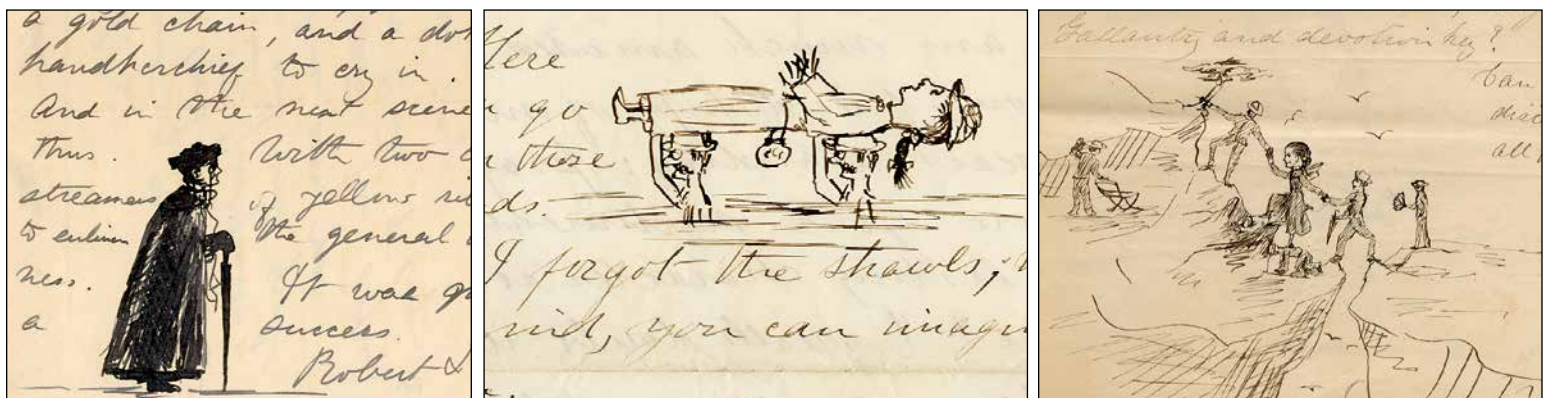 a gold chain, and a dot
handkerchief to cry in.
And in the next scene
thus. With two
streamers of yellow
to enliven the general
ness. It was
a success.
Robert &
Here
go
these
ds.
I forgot the shawls;
ind, you can imagi
Gallantry and devotion hey?
Can
disc
all